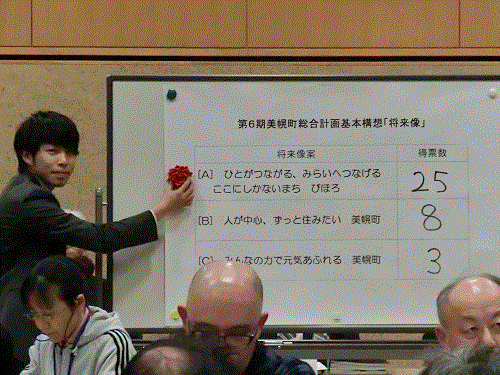 第6期美幌町総合計画基本構想「将来像」
将来像案 得票数
[A] ひとがつながる、みらいへつなげる
ここにしかないまち びほろ 25
[B] 人が中心、ずっと住みたい 美幌町 8
[C] みんなの力で元気あふれる 美幌町 3